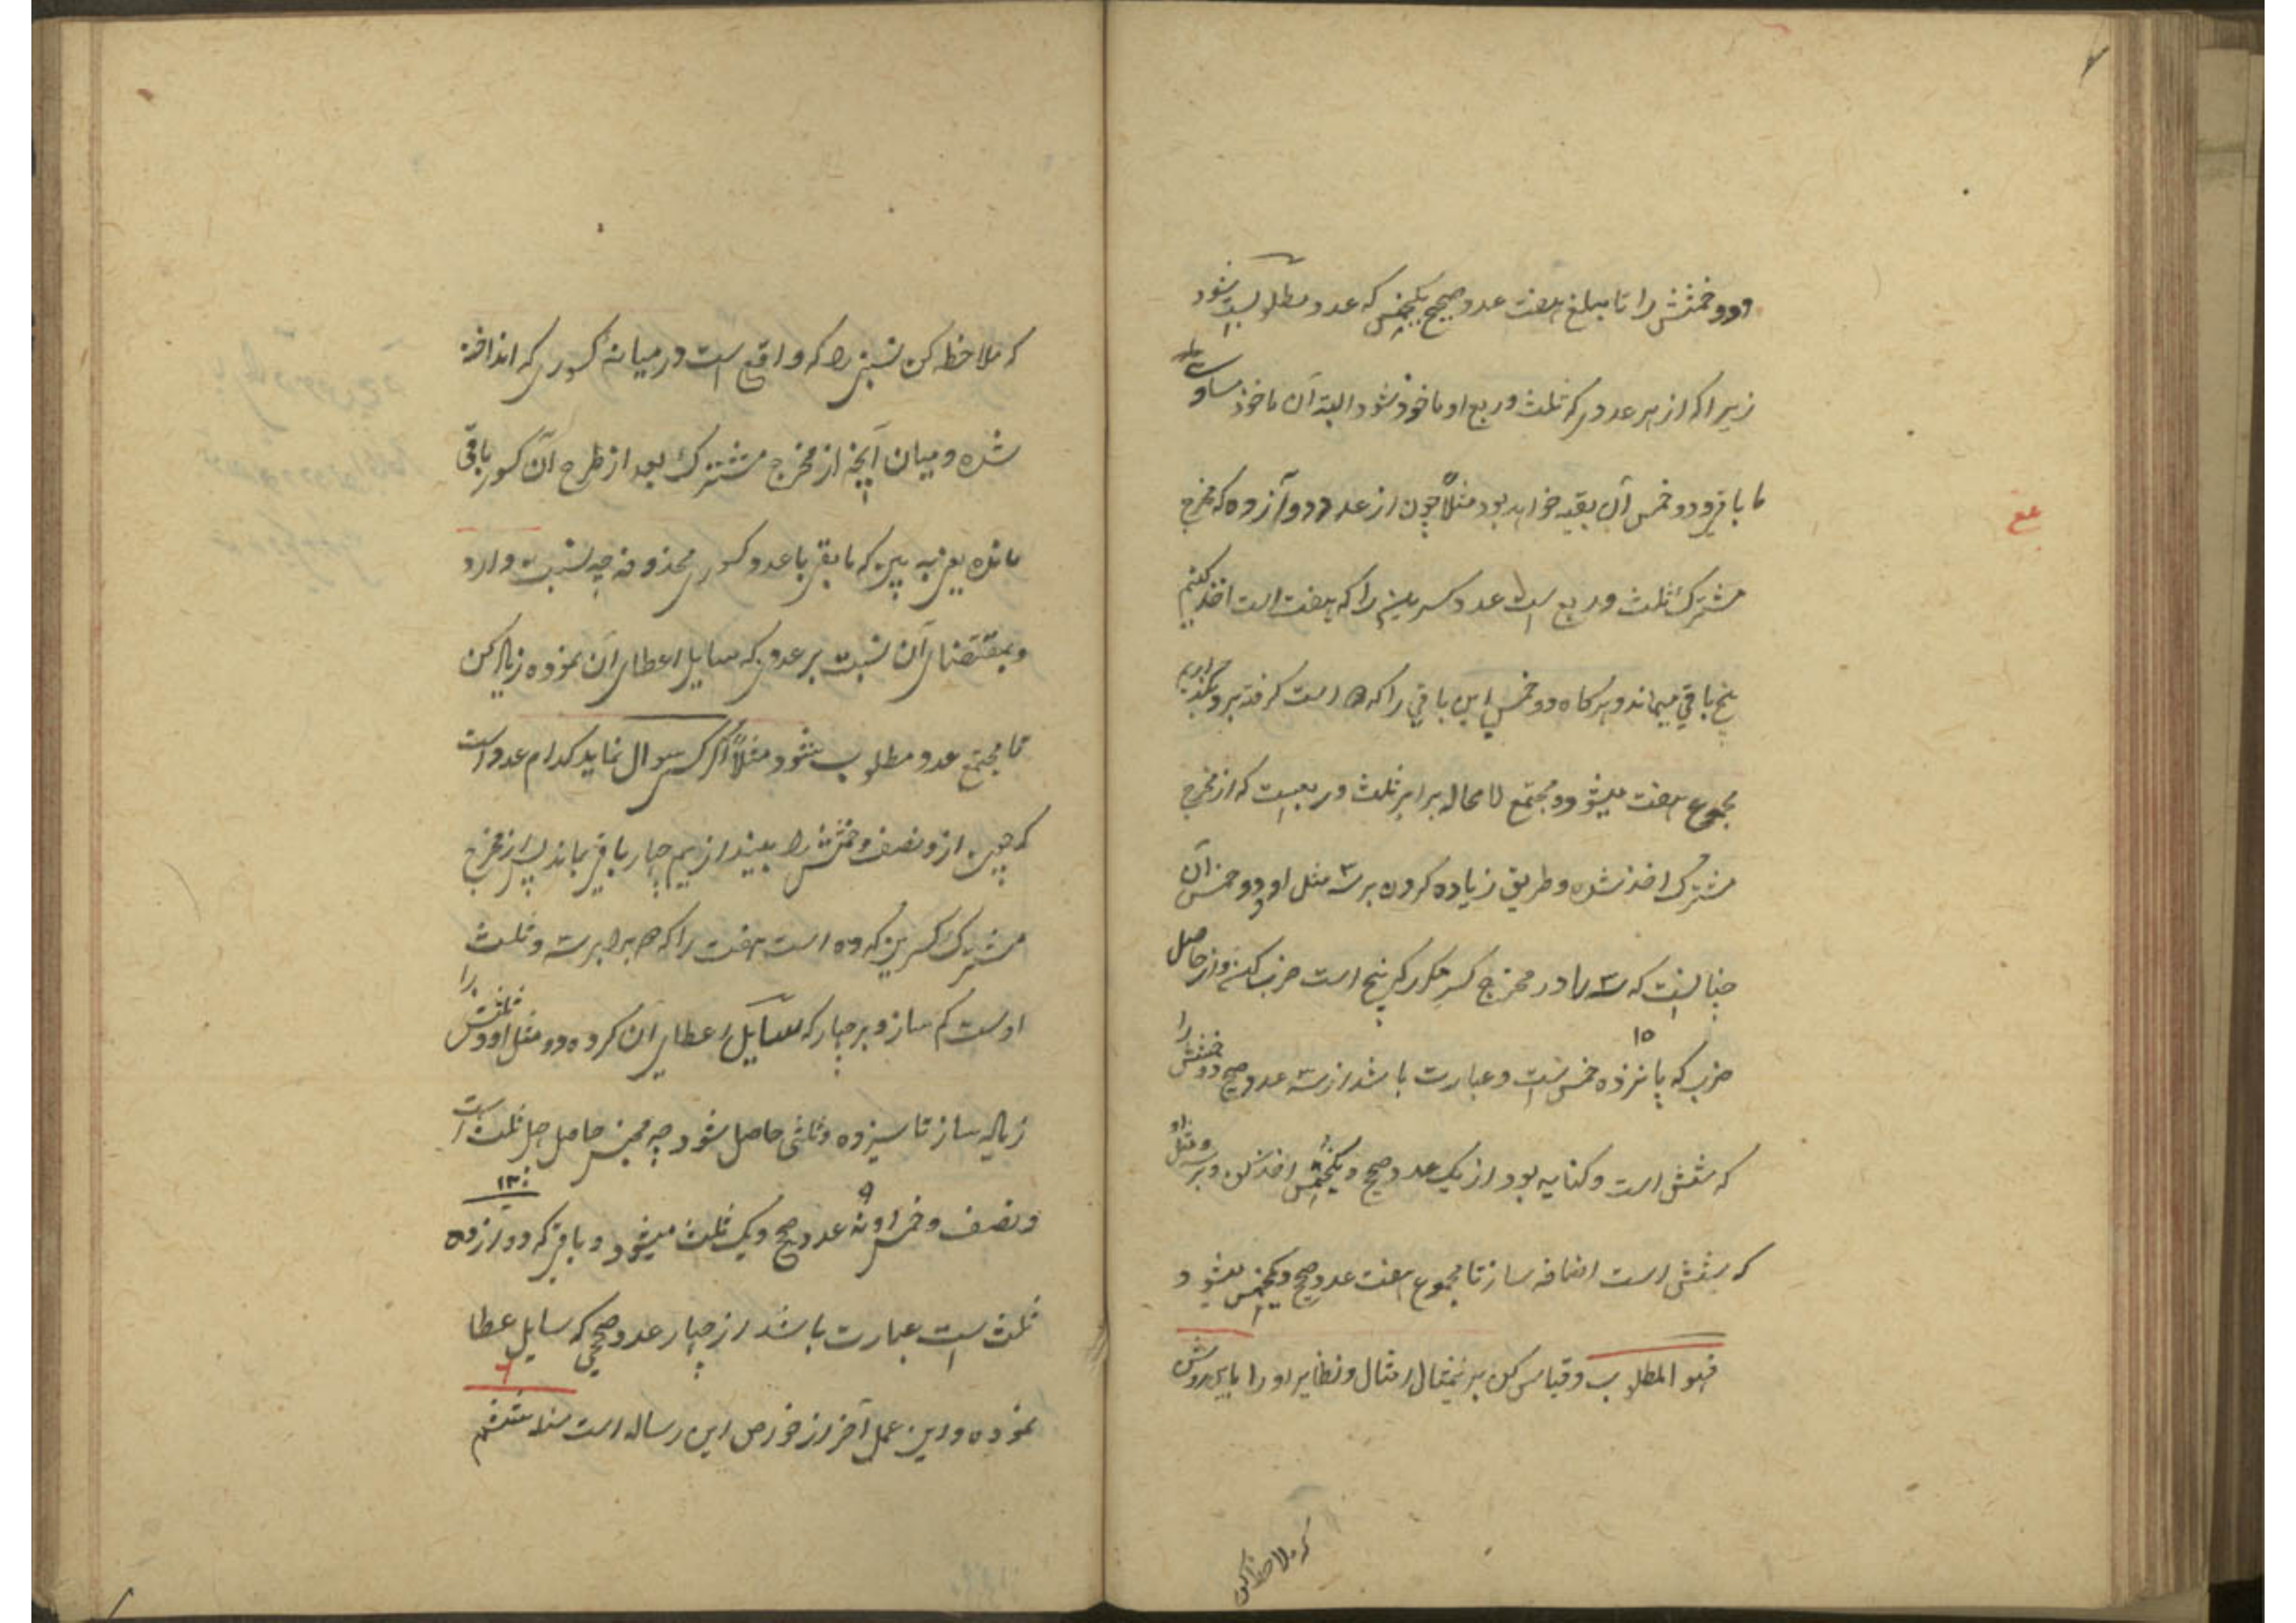 ودو خمسش را تا مبلغ هفت عدد صحیح یکخمس که عدد مطلوبست بشود
زیرا که از هر عددی که ثلث وربع او ماخوذ شود البته آن ماخوذ مساوی
ما باقی ودو خمس آن بقیه خواهد بود مثلاً چون از عدد دوازده که مخرج
مشترک ثلث وربع است عدد کسرین را که هفت است اخذ کنیم
پنج باقی میماند وهرکاه دو خمس این باقی را که ۵ است کرفته برو
مجموع هفت میشود ومجتمع لا محاله برابر ثلث وربعیست که از مخرج
مشترک اخذ شده وطریق زیاده کردن بر ۳ مثل او ودو خمس آن
چنانست که ۳ را در مخرج کسر مکرر که پنج است ضرب کنی واز حاصل
۱۵
ضرب که پانزده خمس است وعبارت باشد از سه عدد صحیح دو خمسش را
که شش است وکنایه بود از یک عدد صحیح ویکخمس اخذ کن وبر سه مثل او
که شش است اضافه ساز تا مجموع هفت عدد صحیح ویکخمس میشود
فهو المطلوب وقیاس کن بر نمثال امثال ونظایر او را باین روش
که ملاحظه کن
که ملاحظه کن نسبتی را که واقع است در میانه کسوری که انداخته
شده ومیان آنچه از مخرج مشترک بعد از طرح آن کسور باقی
مانده یعنی به بین که مابقی با عدد کسور محذوفه چه نسبت دارد
وبمقتضای آن نسبت بر عددی که سایل اعطای آن نموده زیاده کن
تا مجتمع عدد مطلوب شود مثلاً اگر کسی سوال نماید کدام عدد است
که چون ازو نصف وخمسش را بیندازیم چهار باقی بماند پس از مخرج
مشترک کسرین که ده است هفت را که برابر ۳ وثلث
اوست کم ساز وبر چهار که سایل اعطای آن کرده دو مثل او وثلثش را
زیاده ساز تا سیزده وثلثی حاصل شود چه مجنس حاصل چهل ثلث است
۱۳
ونصف وخمس او نه عدد صحیح ویک ثلث میشود وباقی که دوازده
ثلث است عبارت باشد از چهار عدد صحیحی که سایل عطا
نموده واین عمل آخر از خواص این رساله است